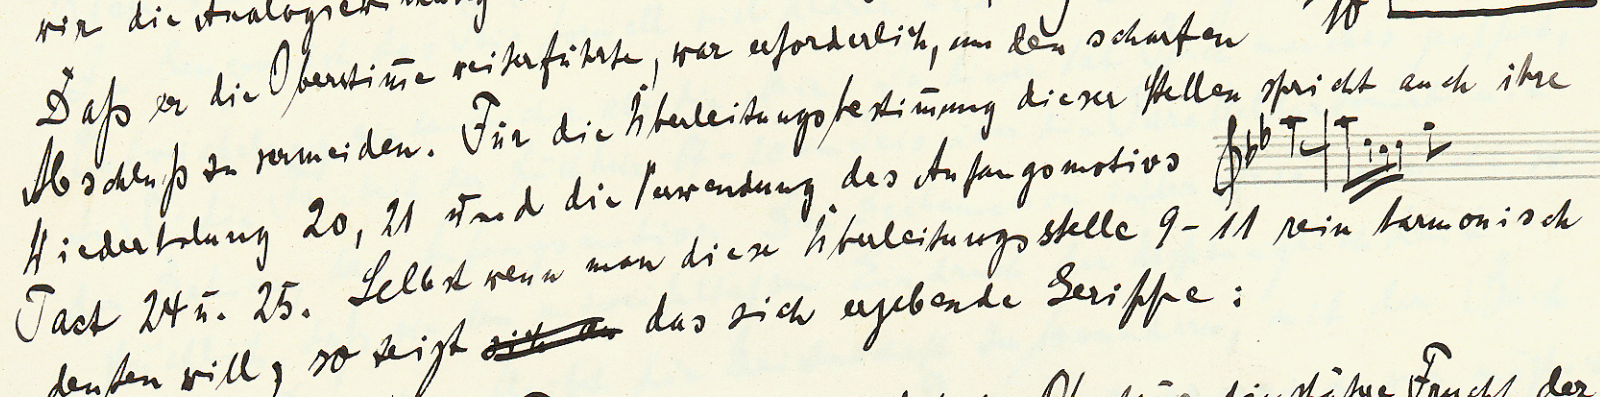 wir die Analogiewirkung
10
Daß er die Oberstim̅e weiterführte, war erforderlich, um den scharfen
Abschluß zu vermeiden. Für die Überleitungsbestim̅ung dieser Stellen spricht auch ihre
Wiederholung 20, 21 und die Verwendung des Anfangsmotivs
Tact 24 u. 25. Selbst wenn man diese Überleitungsstelle 9-11 rein harmonisch
deuten will, so zeigt das sich ergebende Gerippe:
Frucht der